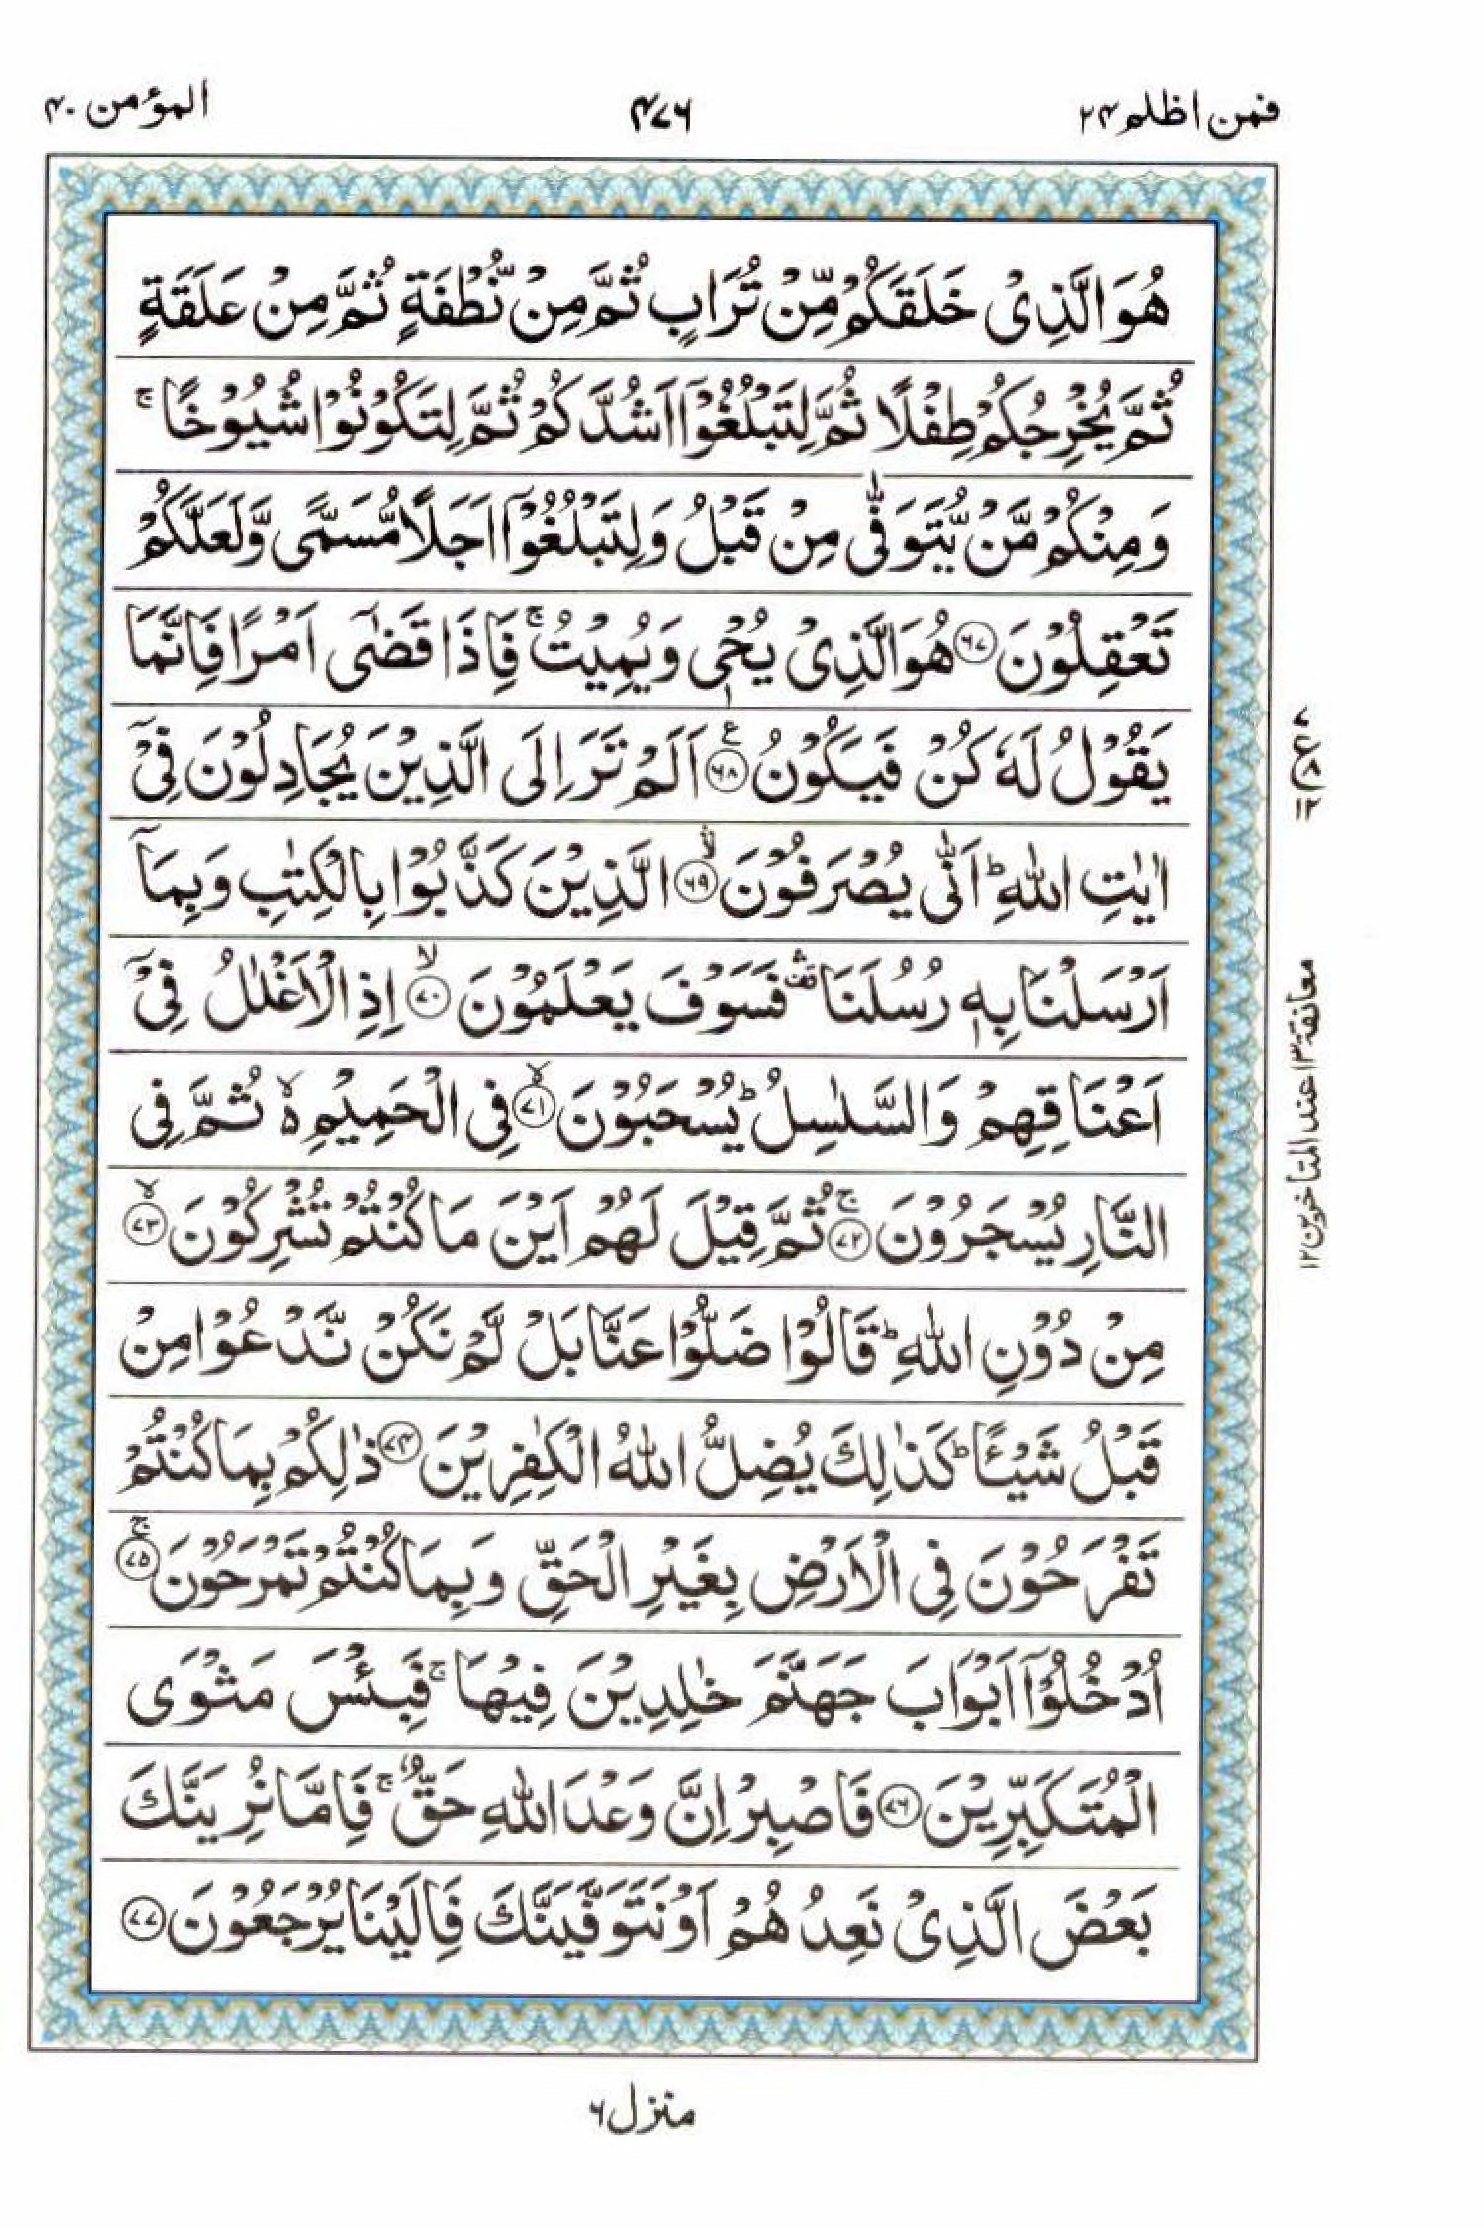 فمن اظلم ۲۴
۴۷۶
المؤمن ۴۰
هُوَ الَّذِیْ خَلَقَكُمْ مِّنْ تُرَابٍ ثُمَّ مِنْ نُّطْفَةٍ ثُمَّ مِنْ عَلَقَةٍ
ثُمَّ یُخْرِجُكُمْ طِفْلًا ثُمَّ لِتَبْلُغُوْۤا اَشُدَّكُمْ ثُمَّ لِتَكُوْنُوْا شُیُوْخًا ۚ
وَمِنْكُمْ مَّنْ یُّتَوَفّٰی مِنْ قَبْلُ وَلِتَبْلُغُوْۤا اَجَلًا مُّسَمًّی وَّلَعَلَّكُمْ
تَعْقِلُوْنَ ﴿۶۷﴾ هُوَ الَّذِیْ یُحْیٖ وَیُمِیْتُ ۚ فَاِذَا قَضٰۤی اَمْرًا فَاِنَّمَا
یَقُوْلُ لَهٗ كُنْ فَیَكُوْنُ ﴿۶۸﴾ ع اَلَمْ تَرَ اِلَی الَّذِیْنَ یُجَادِلُوْنَ فِیْۤ
اٰیٰتِ اللّٰهِ ؕ اَنّٰی یُصْرَفُوْنَ ﴿۶۹﴾ الَّذِیْنَ كَذَّبُوْا بِالْكِتٰبِ وَبِمَاۤ
اَرْسَلْنَا بِهٖ رُسُلَنَا فَسَوْفَ یَعْلَمُوْنَ ﴿۷۰﴾ ۙ اِذِ الْاَغْلٰلُ فِیْۤ
اَعْنَاقِهِمْ وَالسَّلٰسِلُ ؕ یُسْحَبُوْنَ ﴿۷۱﴾ ۙ فِی الْحَمِیْمِ ۙ ثُمَّ فِی
النَّارِ یُسْجَرُوْنَ ﴿۷۲﴾ ۚ ثُمَّ قِیْلَ لَهُمْ اَیْنَ مَا كُنْتُمْ تُشْرِكُوْنَ ﴿۷۳﴾ ۙ
مِنْ دُوْنِ اللّٰهِ ؕ قَالُوْا ضَلُّوْا عَنَّا بَلْ لَّمْ نَكُنْ نَّدْعُوْا مِنْ
قَبْلُ شَیْـًٔا ؕ كَذٰلِكَ یُضِلُّ اللّٰهُ الْكٰفِرِیْنَ ﴿۷۴﴾ ذٰلِكُمْ بِمَا كُنْتُمْ
تَفْرَحُوْنَ فِی الْاَرْضِ بِغَیْرِ الْحَقِّ وَبِمَا كُنْتُمْ تَمْرَحُوْنَ ﴿۷۵﴾ ۚ
اُدْخُلُوْۤا اَبْوَابَ جَهَنَّمَ خٰلِدِیْنَ فِیْهَا ۚ فَبِئْسَ مَثْوَی
الْمُتَكَبِّرِیْنَ ﴿۷۶﴾ فَاصْبِرْ اِنَّ وَعْدَ اللّٰهِ حَقٌّ ۚ فَاِمَّا نُرِیَنَّكَ
بَعْضَ الَّذِیْ نَعِدُهُمْ اَوْ نَتَوَفَّیَنَّكَ فَاِلَیْنَا یُرْجَعُوْنَ ﴿۷۷﴾
۷
ع ۸
۱۲
معانقة ۱۳ عند المتاخرین ۱۲
منزل ۶